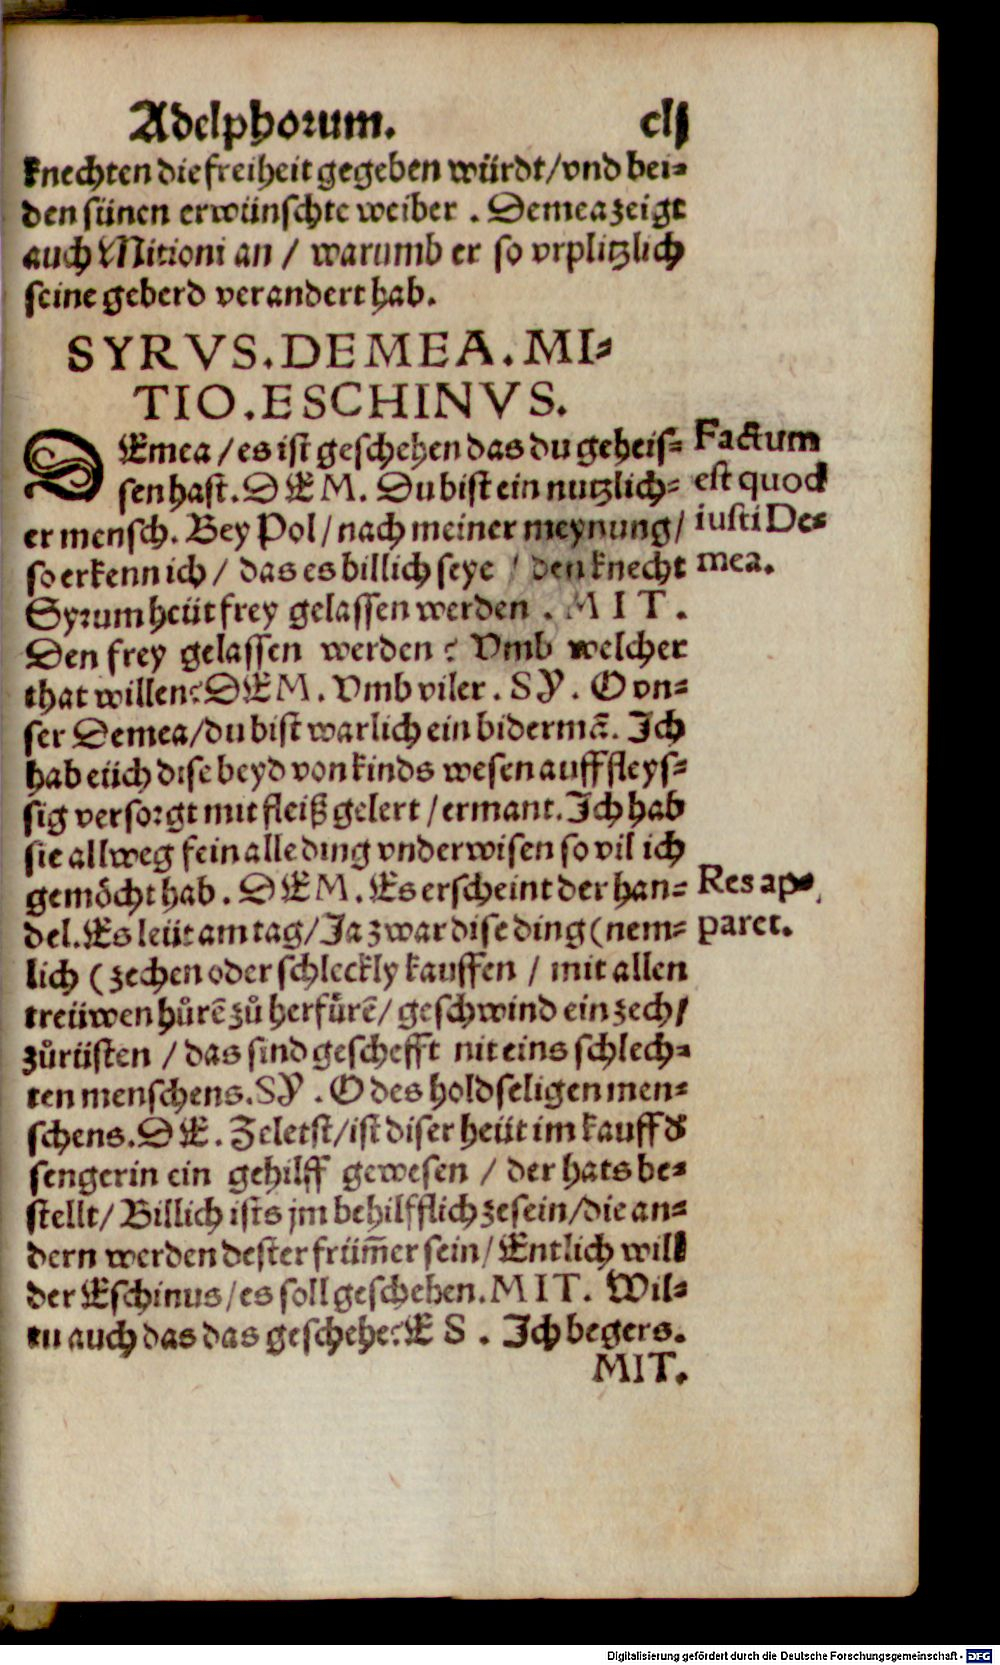 Adelphorum. clj
knechten die freiheit gegeben würdt/vnd bei⸗
den sünen erwünschte weiber . Demea zeigt
auch Mitioni an / warumb er so vrplitzlich
seine geberd verandert hab.
SYRVS.DEMEA.MI⸗
TIO.ESCHINVS.
DEmea / es ist geschehen das du geheis⸗
sen hast. DEM. Du bist ein nutzlich⸗
er mensch. Bey Pol / nach meiner meynung /
so erkenn ich / das es billich seye / den knecht
Syrum heüt frey gelassen werden . MIT.
Den frey gelassen werden ? Vmb welcher
that willen? DEM. Vmb viler . SY. O vn⸗
ser Demea/du bist warlich ein bidermã. Ich
hab eüch dise beyd von kinds wesen auff fleys⸗
sig versorgt mit fleiß gelert / ermant. Ich hab
sie allweg fein alle ding vnderwisen so vil ich
gemöcht hab . DEM. Es erscheint der han⸗
del. Es leüt am tag/ Ja zwar dise ding (nem⸗
lich ( zechen oder schleckly kauffen / mit allen
treüwen hůrẽ zů herfůrẽ/ geschwind ein zech/
zůrüsten / das sind geschefft nit eins schlech⸗
ten menschens. SY . O des holdseligen men⸗
schens. DE. Zeletst/ist diser heüt im kauff d̕
sengerin ein gehilff gewesen / der hats be⸗
stellt/ Billich ists jm behilfflich zesein/die an⸗
dern werden dester frům̃er sein/ Entlich will
der Eschinus/es soll geschehen. MIT. Wil⸗
tu auch das das geschehe? ES . Ich begers.
MIT.
Factum
est quod
iusti De⸗
mea.
Res ap⸗
paret.
Digitalisierung gefördert durch die Deutsche Forschungsgemeinschaft - DFG